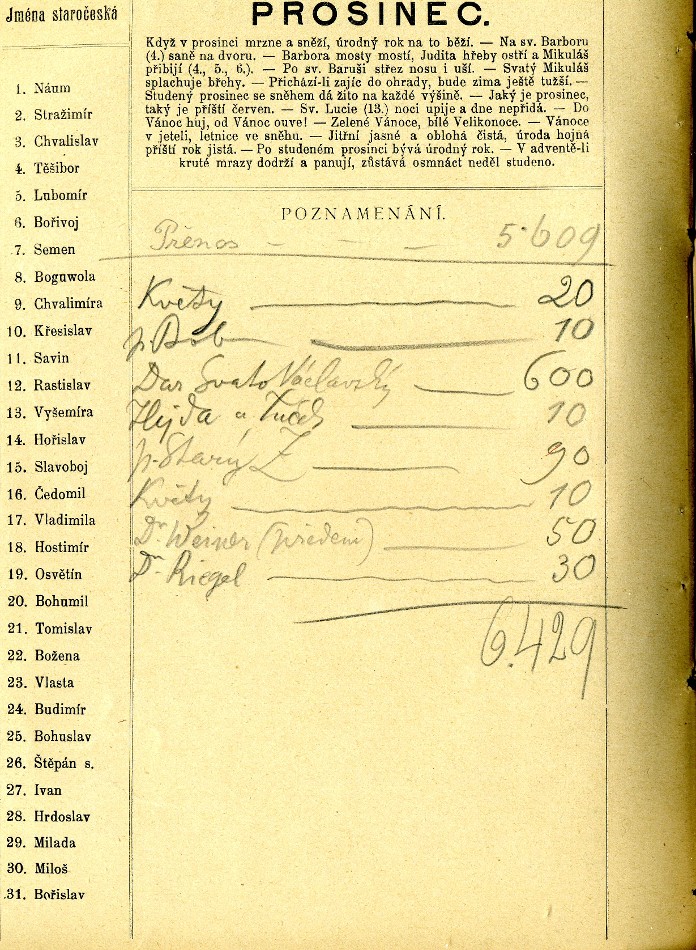 Jména staročeská
1. Náum
2. Stražimír
3. Chvalislav
4. Těšibor
5. Lubomír
6. Bořivoj
7. Semen
8. Boguwola
9. Chvalimíra
10. Křesislav
11. Savin
12. Rastislav
13. Vyšemíra
14. Hořislav
15. Slavoboj
16. Čedomil
17. Vladimila
18. Hostimír
19. Osvětín
20. Bohumil
21. Tomislav
22. Božena
23. Vlasta
24. Budimír
25. Bohuslav
26. Štěpán s.
27. Ivan
28. Hrdoslav
29. Milada
30. Miloš
31. Bořislav
PROSINEC.
Když v prosinci mrzne a sněží, úrodný rok na to běží. — Na sv. Barboru
(4.) saně na dvoru. — Barbora mosty mostí, Judita hřeby ostří a Mikuláš
přibijí (4., 5., 6.). — Po sv. Baruši střez nosu i uší. — Svatý Mikuláš
splachuje břehy. — Přichází-li zajíc do ohrady, bude zima ještě tužší. —
Studený prosinec se sněhem dá žito na každé výšině. — Jaký je prosinec,
taký je příští červen. — Sv. Lucie (13.) noci upije a dne nepřidá. — Do
Vánoc hůj, od Vánoc ouve! — Zelené Vánoce, bílé Velikonoce. — Vánoce
v jeteli, letnice ve sněhu. — Jitřní jasné a obloha čistá, úroda hojná
příští rok jistá. — Po studeném prosinci bývá úrodný rok. — V adventě-li
kruté mrazy dodrží a panují, zůstává osmnáct neděl studeno.
POZNAMENÁNÍ.
Přenos — — — 5.609
Květy — 20
p. — 10
Dar Svato Václavský — 600
Hejda a Tuček — 10
p. Starý Z — 90
Květy — 10
Dr. Weiner (předem) — 50
Dr. Riegel — 30
6.429